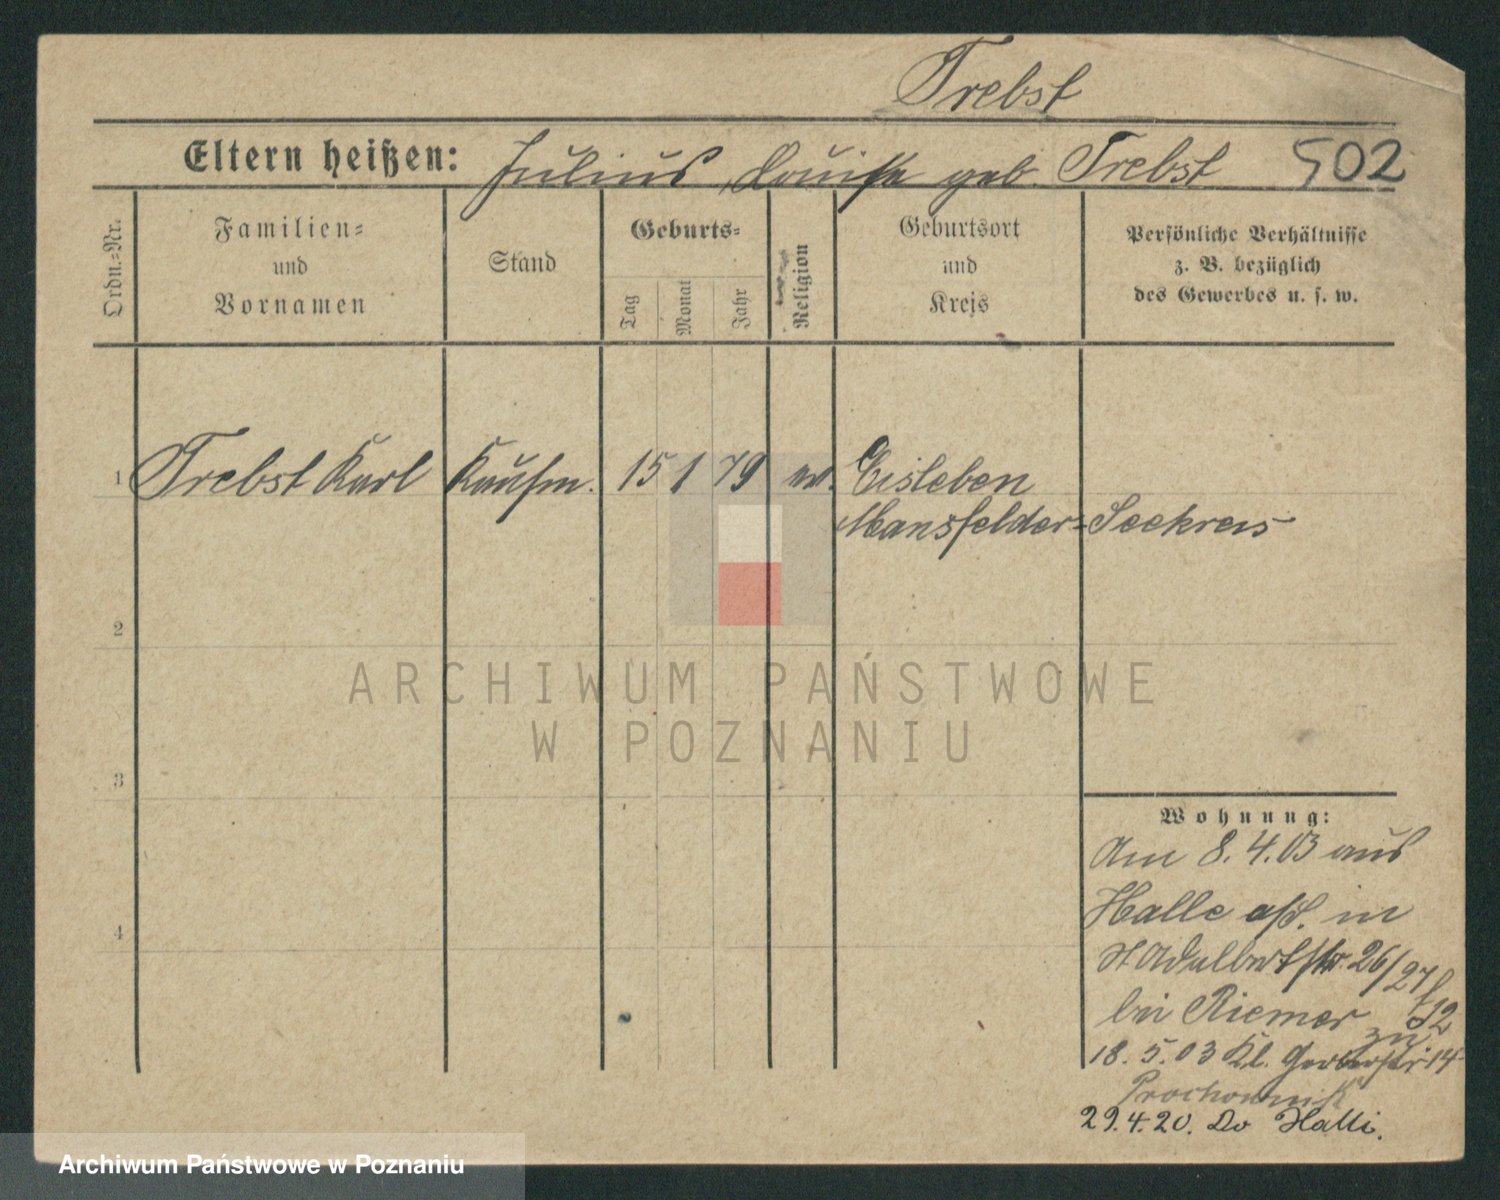 Trebst
Eltern heißen: Julius, Louise geb. Trebst 502
Ordn.-Nr.
Familien-
und
Vornamen
Stand
Geburts-
Tag
Monat
Jahr
Religion
Geburtsort
und
Kreis
Persönliche Verhältnisse
z. B. bezüglich
des Gewerbes u. s. w.
1 Trebst Karl Kaufm. 15 1 79 ev. Eisleben
Mansfelder-Seekreis
2
3
4
ARCHIWUM PAŃSTWOWE
W POZNANIU
Wohnung:
Am 8.4.03 aus
Halle a/S. in
St Adalbertstr. 26/27
bei Riemer zu
18.5.03 Kl. Gerberstr. 14
29.4.20. Halle.
Archiwum Państwowe w Poznaniu